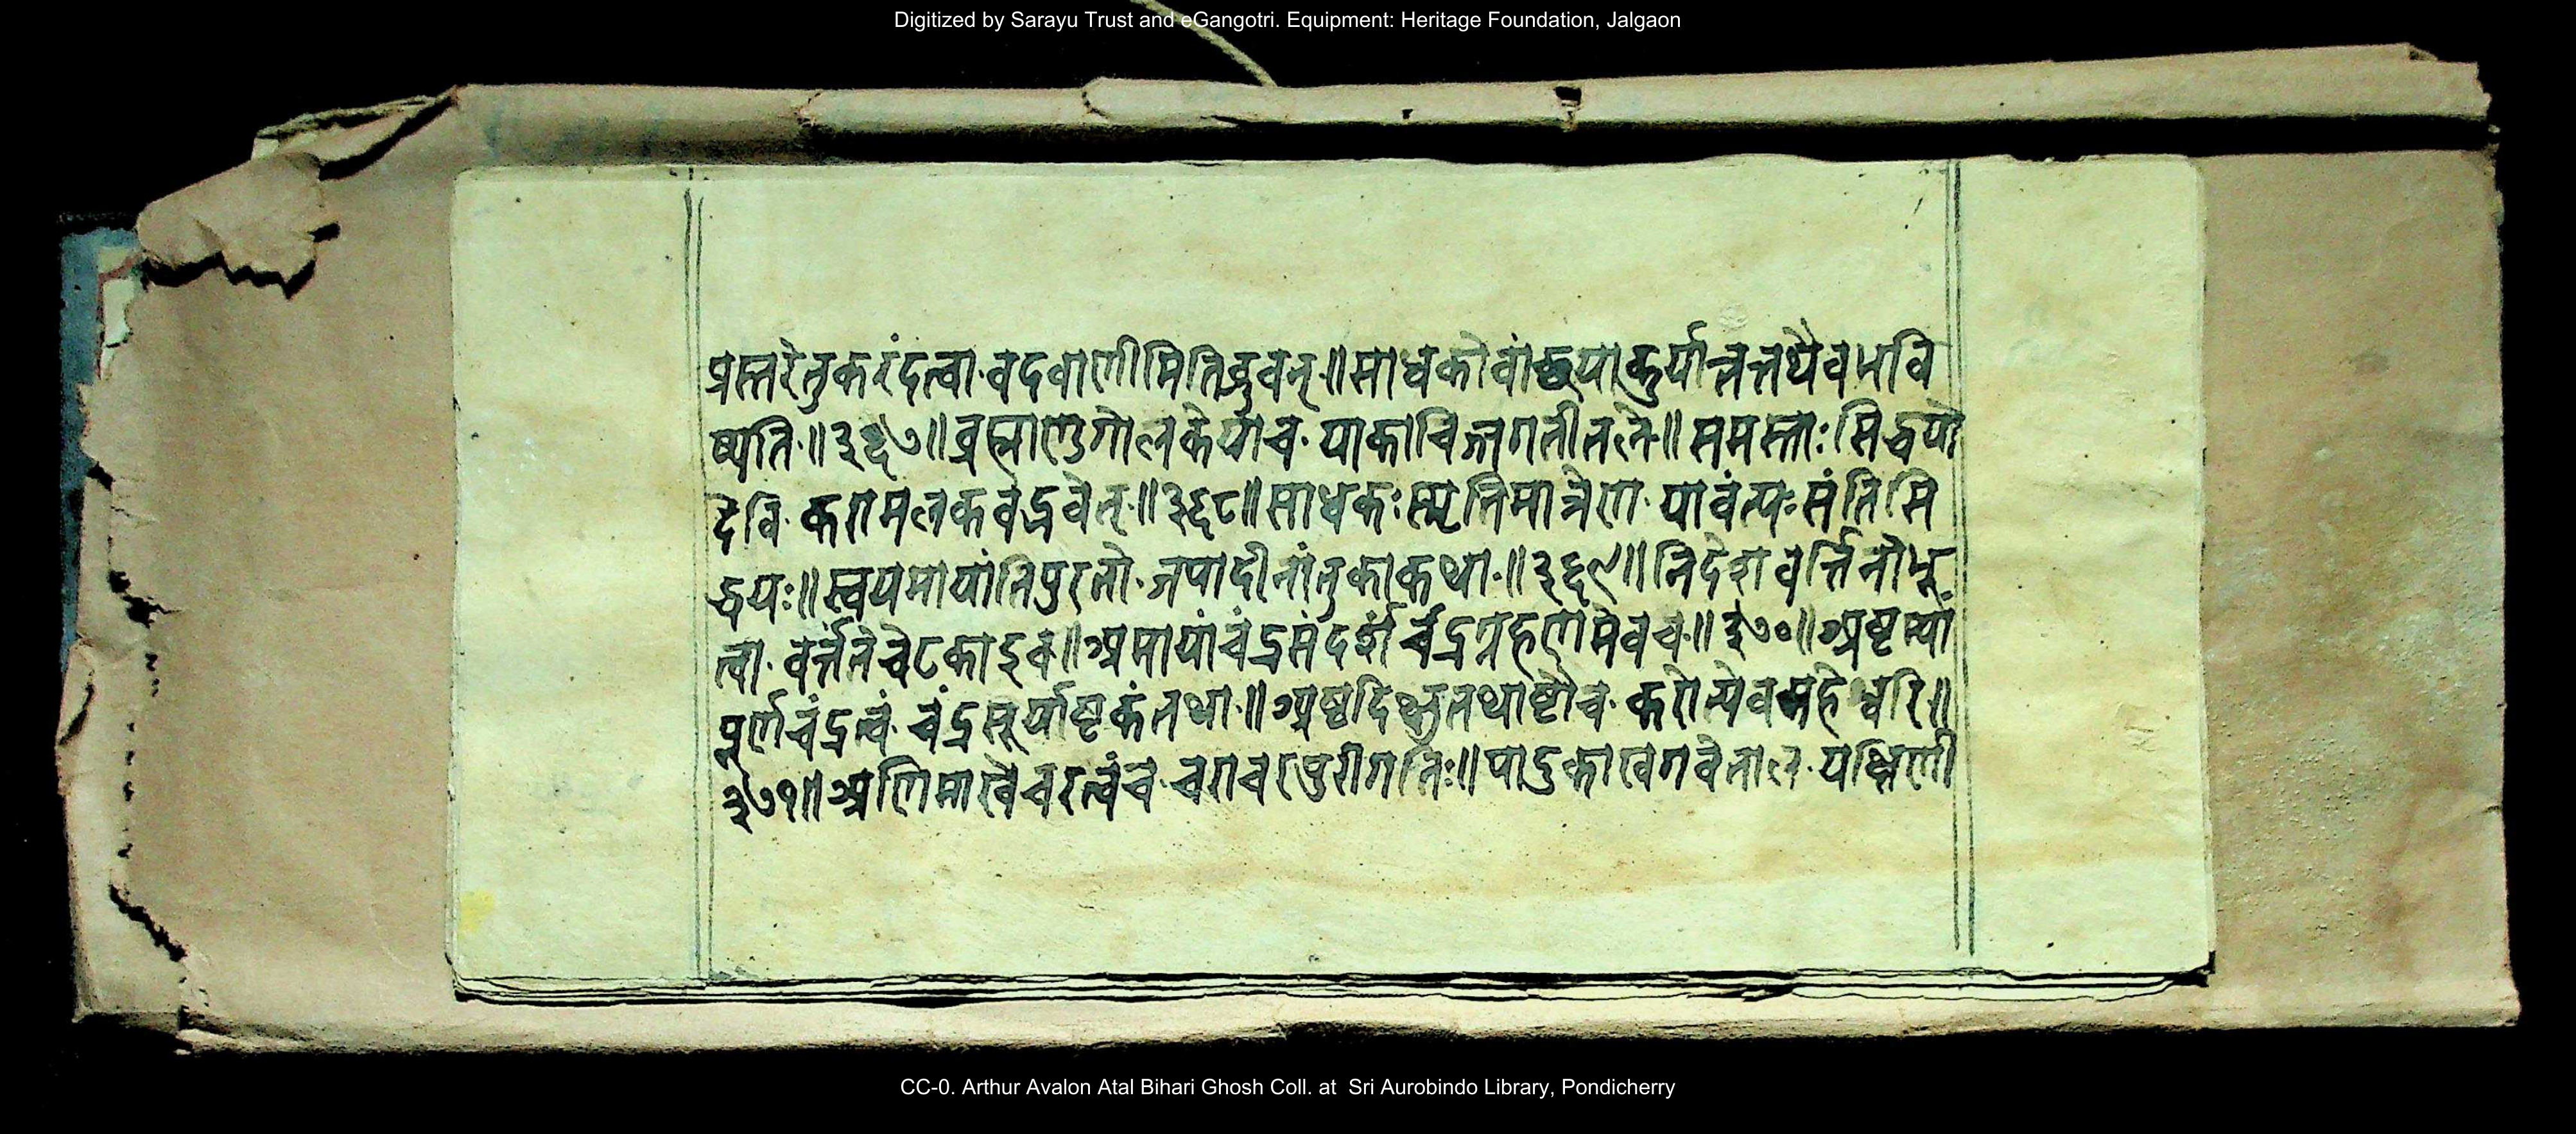 Digitized by Sarayu Trust and eGangotri. Equipment: Heritage Foundation, Jalgaon
प्रस्तरेतुकरंदत्वा वदवाणीमितिब्रुवन् ॥ साधकोवांछयाकुर्यात्तत्तथैवभवि
ष्यति ॥ ३६७ ॥ ब्रह्माण्डगोलकेयाच याकाचिज्जगतीतले ॥ समस्ताः सिद्धयो
देवि करामलकवद्भवेत् ॥ ३६८ ॥ साधकः स्मृतिमात्रेण यावंत्यः संतिसि
द्धयः ॥ स्वयमायांतिपुरतो जपादीनांतुकाकथा ॥ ३६९ ॥ निदेशवर्त्तिनोभू
त्वा वर्त्तंतेचेटकाइव ॥ अमायांचंद्रसंदर्शं चंद्रग्रहणमेवच ॥ ३७० ॥ अष्टम्यां
पूर्णचंद्रत्वं चंद्रसूर्याष्टकंतथा ॥ अष्टदिक्षुतथाष्टौच करोत्येवमहेश्वरि ॥
३७१ ॥ अणिमाखेचरत्वंच चराचरपुरीगतिः ॥ पादुकाखगवेताल यक्षिणी
CC-0. Arthur Avalon Atal Bihari Ghosh Coll. at Sri Aurobindo Library, Pondicherry